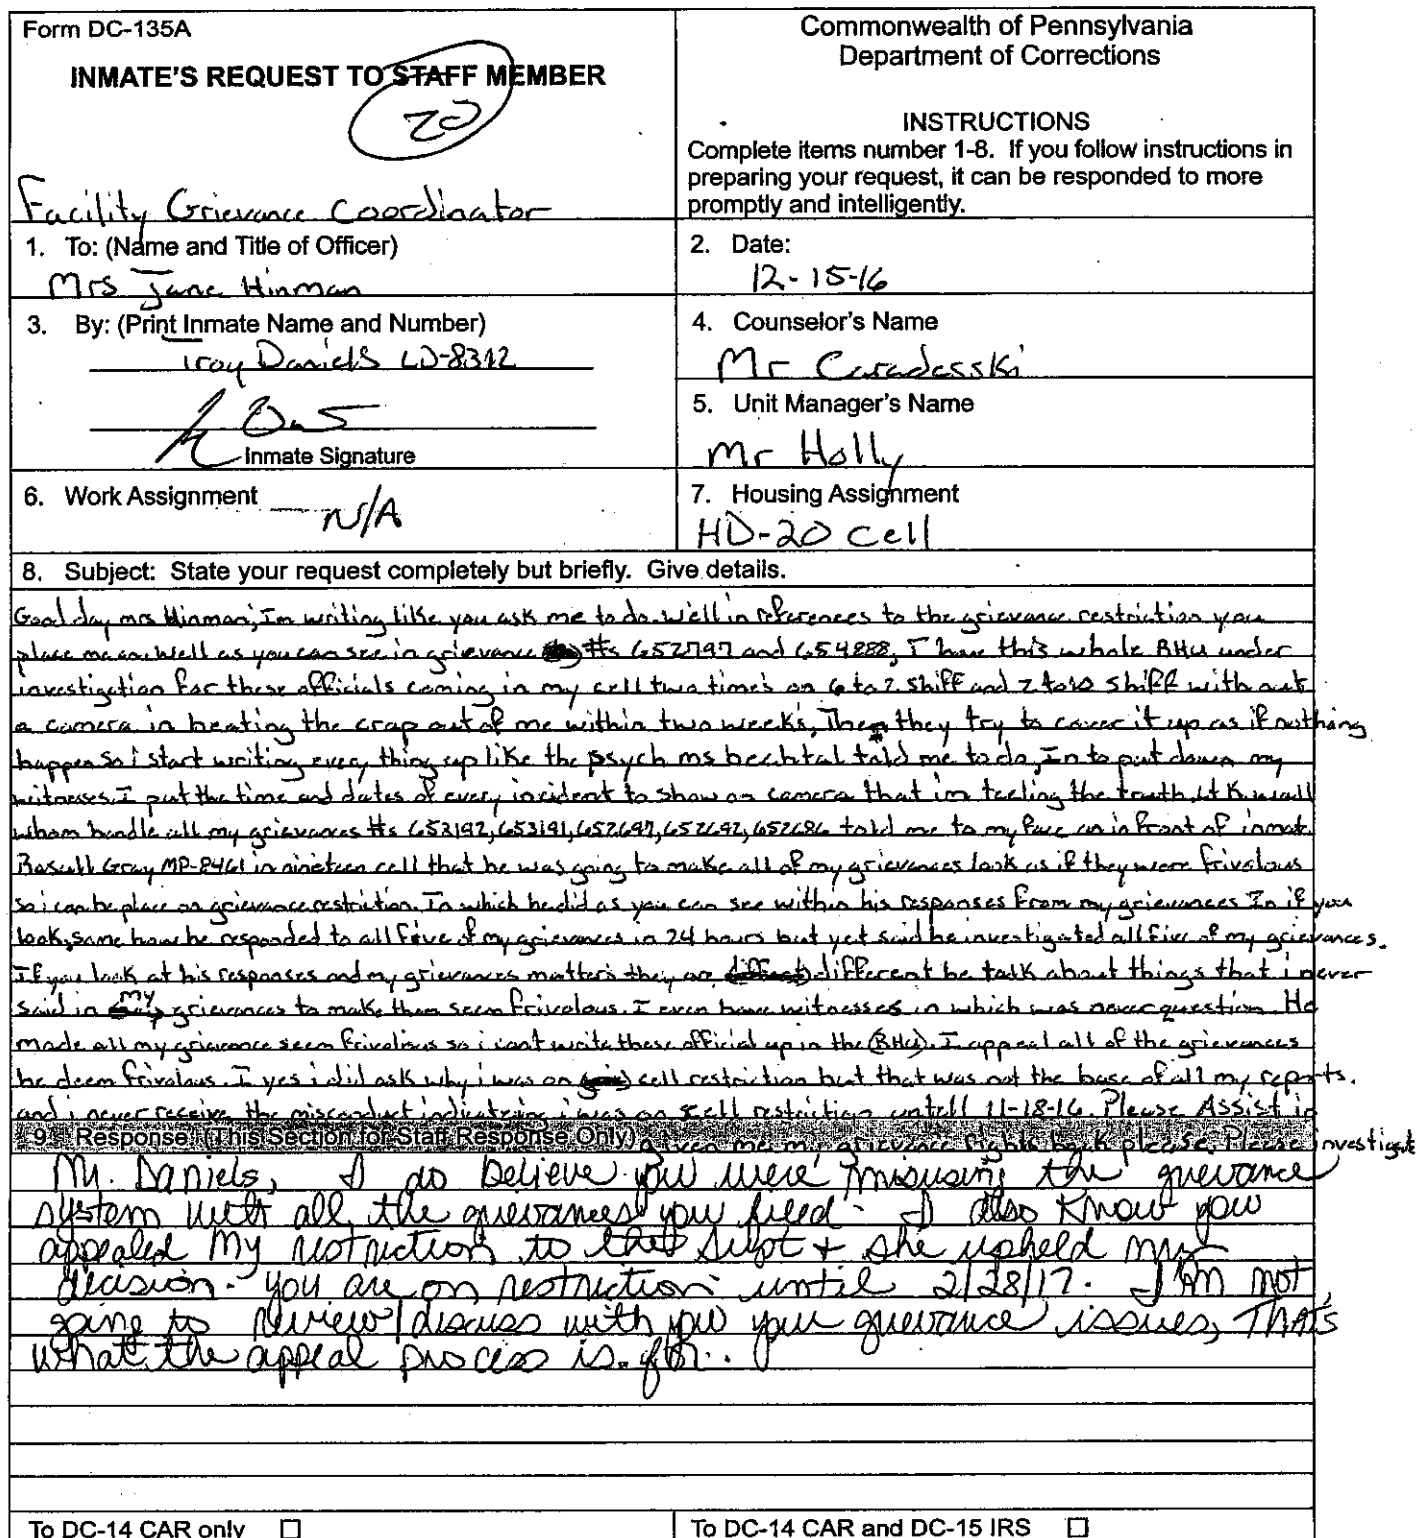 Form DC-135A
INMATE'S REQUEST TO STAFF MEMBER
20
Commonwealth of Pennsylvania
Department of Corrections
INSTRUCTIONS
Complete items number 1-8. If you follow instructions in
preparing your request, it can be responded to more
promptly and intelligently.
Facility Grievance Coordinator
1. To: (Name and Title of Officer)
Mrs Jane Hinman
2. Date:
12-15-16
3. By: (Print Inmate Name and Number)
Troy Daniels LD-8312
Inmate Signature
4. Counselor's Name
Mr
5. Unit Manager's Name
Mr Holly
6. Work Assignment
N/A
7. Housing Assignment
HD-20 Cell
8. Subject: State your request completely but briefly. Give details.
Good day mrs Hinman, Im writing like you ask me to do. well in references to the grievance restriction you
place me on. Well as you can see in grievance #s 652797 and 654888, I have this whole RHU under
investigation for these officials coming in my cell two time's on 6 to 2 shiff and 2 to10 shiff with out
a camera in beating the crap out of me within two weeks, Then they try to cover it up as if nothing
happen so i start writing every thing up like the psych ms bechtal told me to do, In to put down my
witnesses. I put the time and dates of every incident to show on camera that im teeling the truth. Lt
whom handle all my grievances #s 653192, 653191, 652697, 652692, 652686 told me to my face an infront of inmate
Gray MP-8461 in nineteen cell that he was going to make all of my grievances look as if they were frivolous
so i can be place on grievance restriction. In which he did as you can see within his responses from my grievances In if you
look, some how he responded to all five of my grievances in 24 hours but yet said he investigated all five of my grievances.
If you look at his responses and my grievances matters they are different he talk about things that i never
said in my grievances to make them seem frivolous. I even have witnesses in which was never question. He
made all my grievance seem frivolous so i cant write these official up in the (RHU). I appeal all of the grievances
he deem frivolous. I yes i did ask why i was on cell restriction but that was not the base of all my reports.
and i never receive the misconduct indicating i was on cell restriction untell 11-18-16. Please Assist in
9. Response: (This Section for Staff Response Only) given me my grievance rights back please. Please investigate
Mr. Daniels, I do believe you were misusing the grievance
system with all the grievances you filed. I also know you
appealed my restriction to the Supt + she upheld my
decision. You are on restriction until 2/28/17. I am not
going to review/discuss with you your grievance issues, THAT'S
what the appeal process is for.
To DC-14 CAR only
To DC-14 CAR and DC-15 IRS